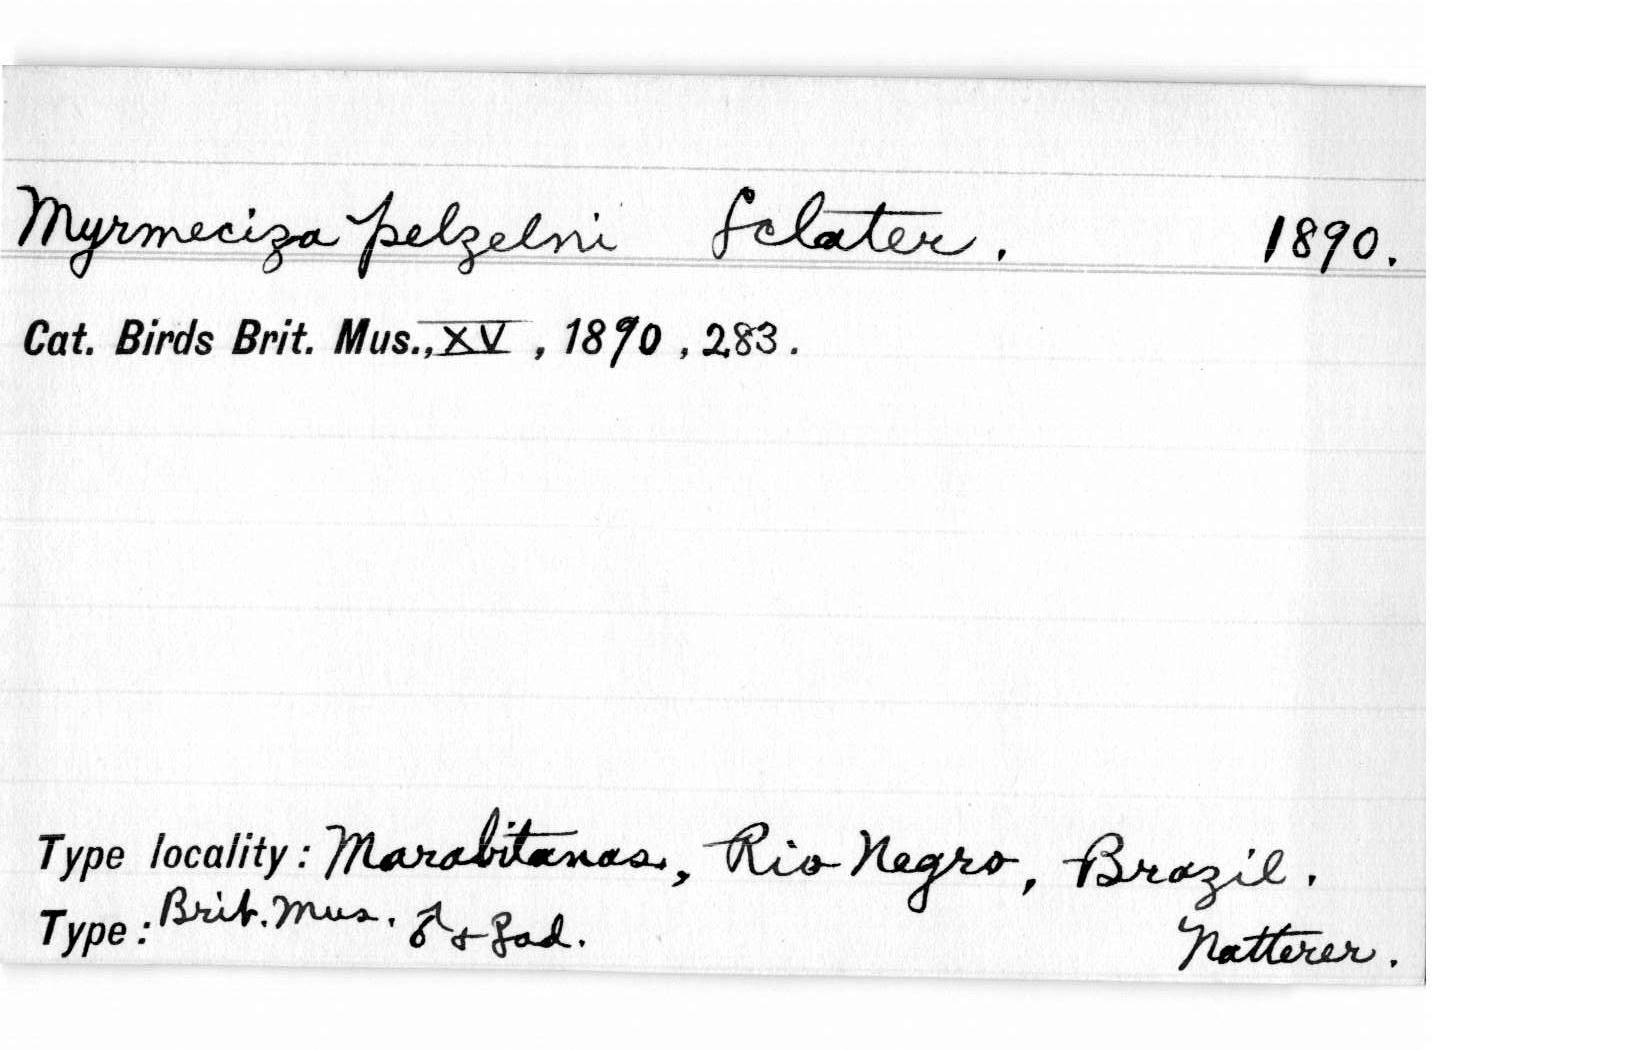 Myrmeciza pelzelni Sclater. 1890.
Cat. Birds Brit. Mus., XV, 1890, 283.
Type locality: Marabitanas, Rio Negro, Brazil.
Type: Brit. Mus. ♂ & ♀ ad. Natterer.